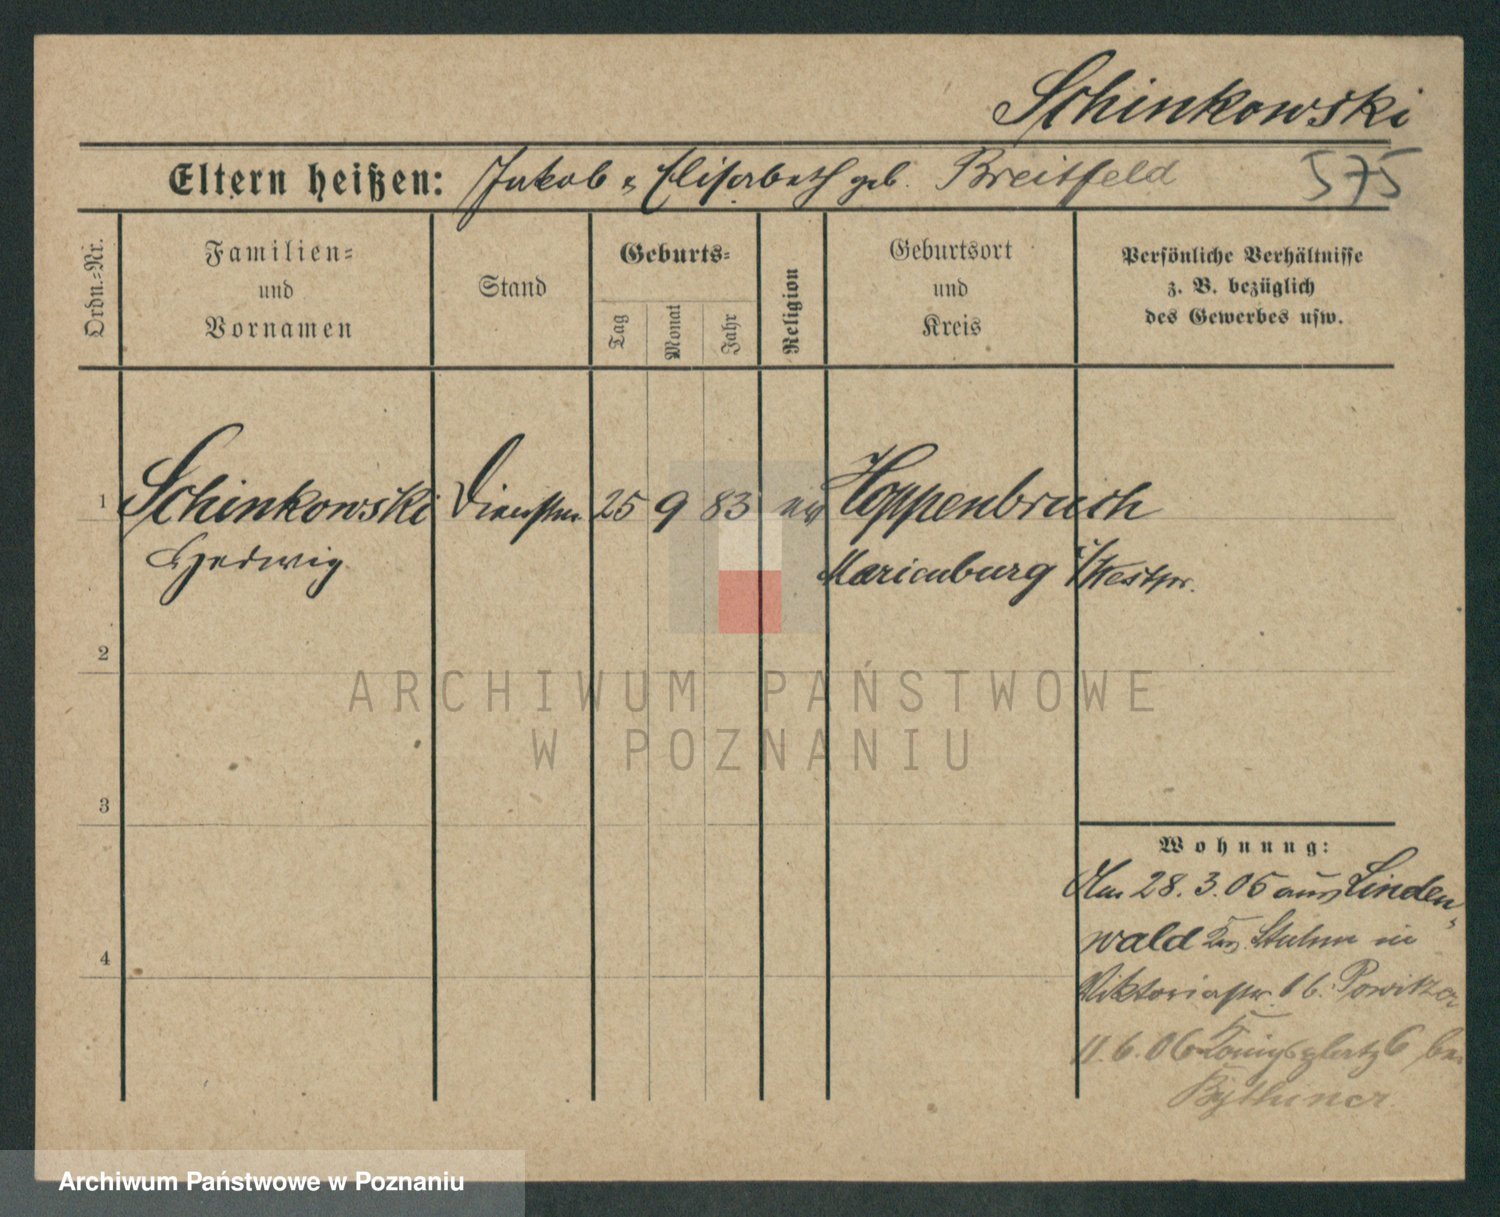 Schinkowski
Eltern heißen: Jakob u. Elisabeth geb. Breitfeld 575
Ordn.-Nr.
Familien-
und
Vornamen
Stand
Geburts-
Tag
Monat
Jahr
Religion
Geburtsort
und
Kreis
Persönliche Verhältnisse
z. B. bezüglich
des Gewerbes usw.
1 Schinkowski Dienstm. 25 9 83 ev Hoppenbruch
Hedwig Marienburg i/Westpr.
2
3
4
Wohnung:
Am 28. 3. 06 aus Linden-
wald Krs. Stuhm in
Viktoriastr. 16. Powitzer
11. 6. 06 Königsplatz 6 bei
Bythiner
ARCHIWUM PAŃSTWOWE
W POZNANIU
Archiwum Państwowe w Poznaniu